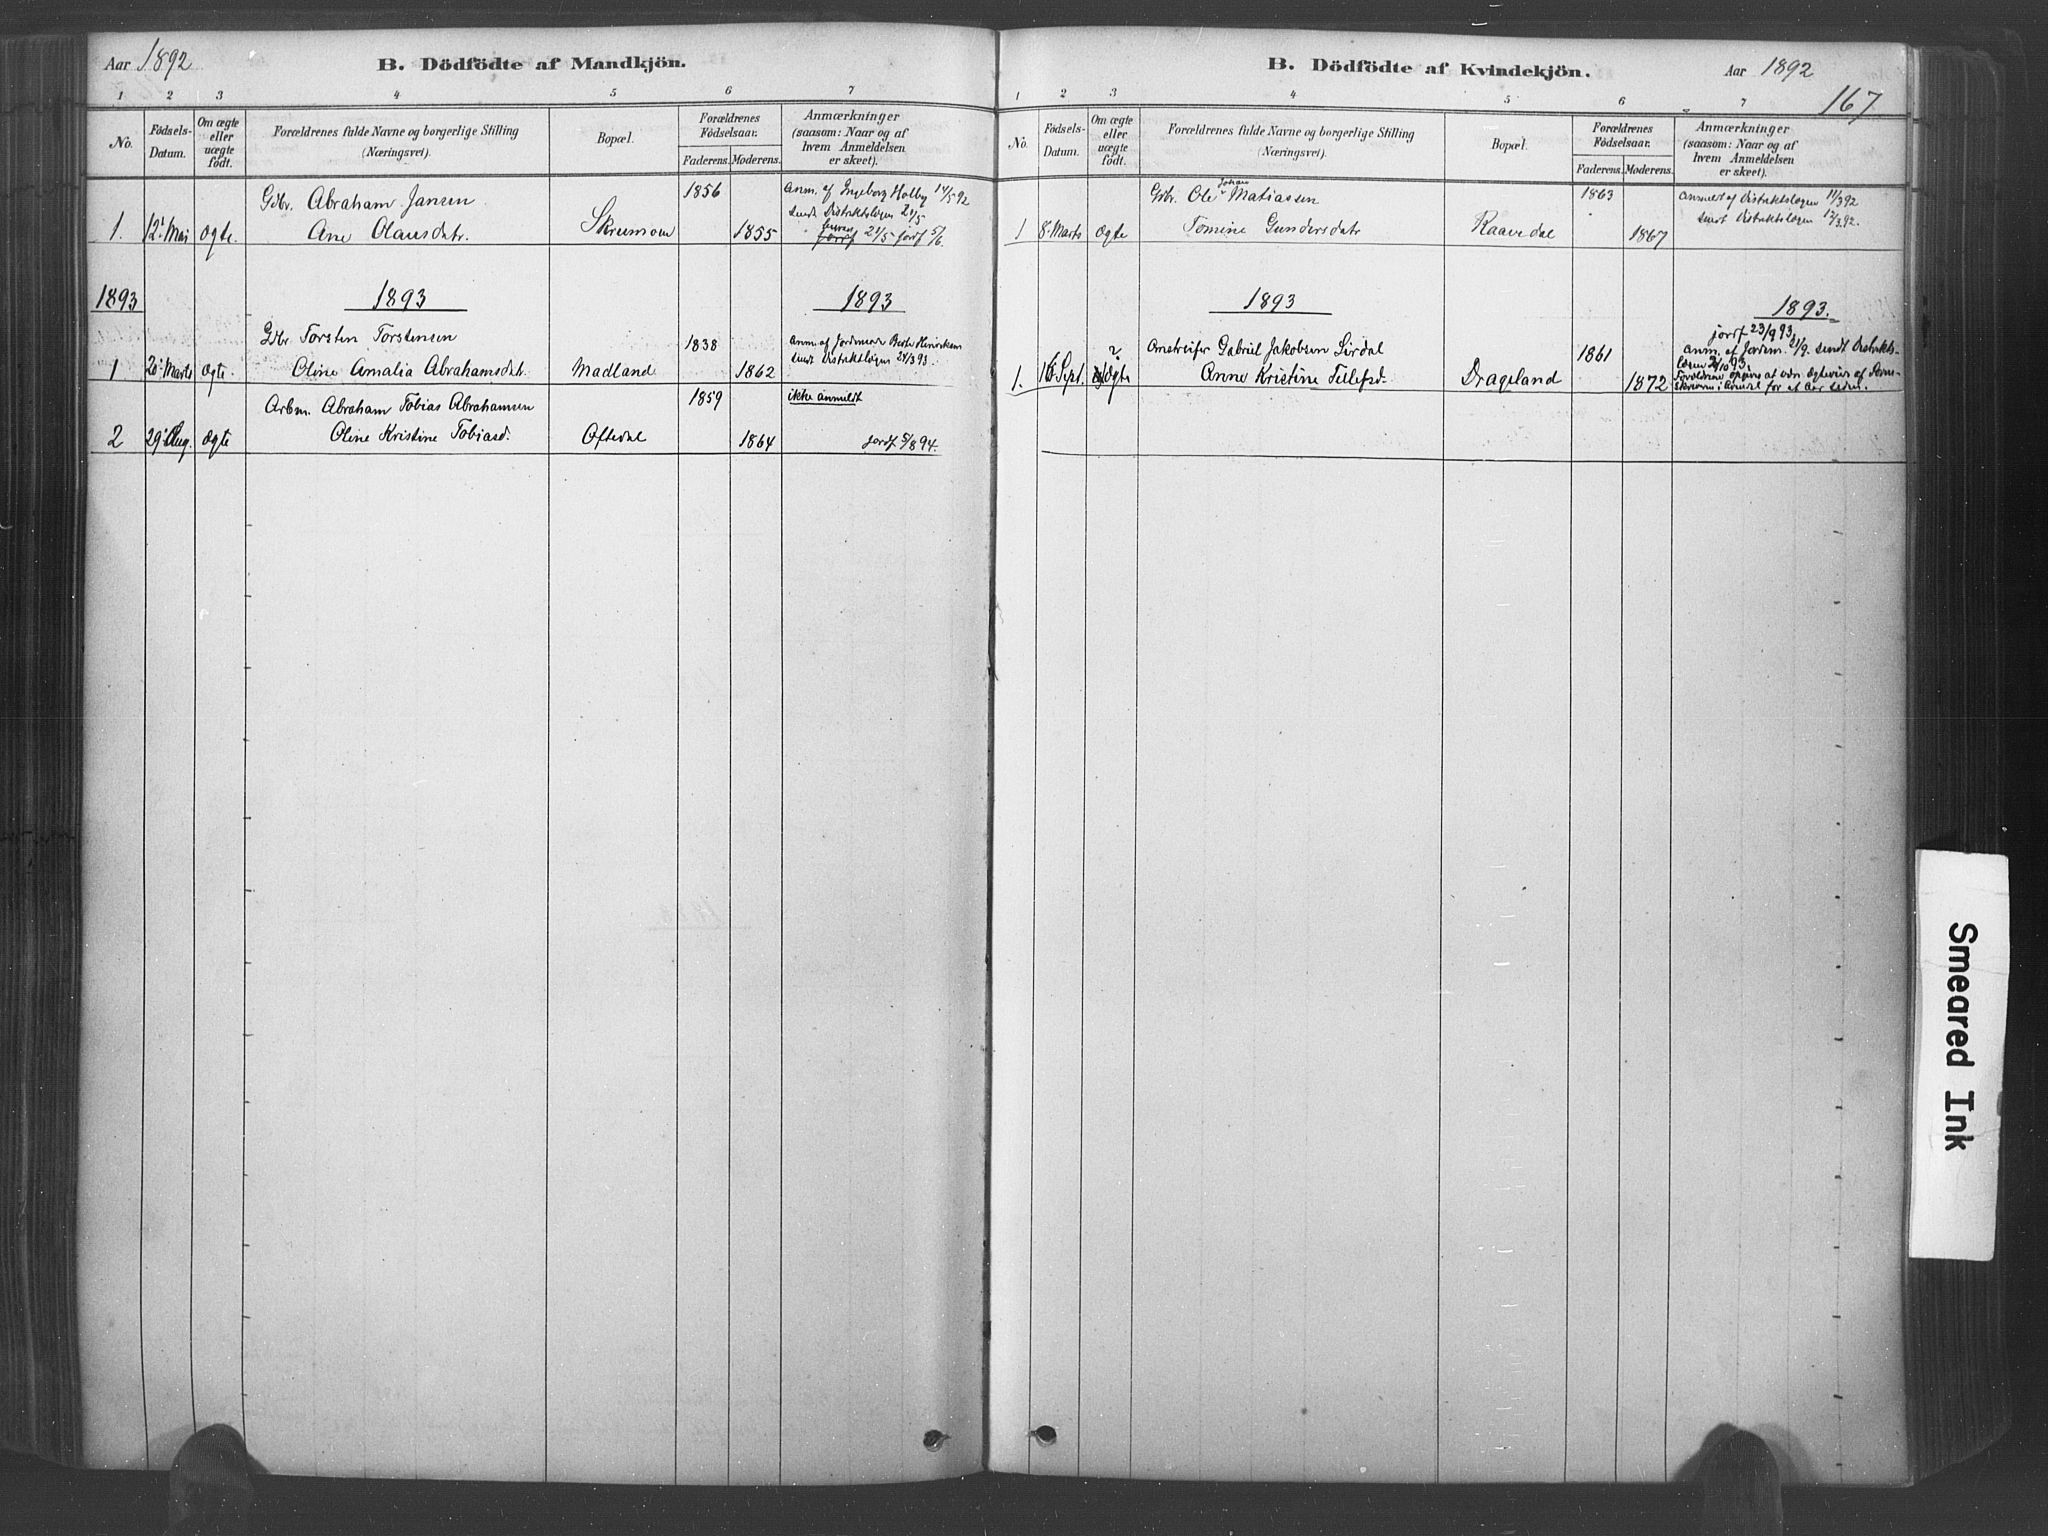 Aar 1892
B. Dödfödte af Mandkjön.
1 2 3 4 5 6 7
No.
Fødsels-
Datum.
Om ægte
eller
uægte
født.
Forældrenes fulde Navne og borgerlige Stilling
(Næringsvei).
Bopæl.
Forældrenes
Fødselsaar.
Faderens. Moderens.
Anmærkninger
(saasom: Naar og af
hvem Anmeldelsen
er skeet).
Gdbr. Abraham Jansen 1856 Anm. af Ingeborg Holby 14/5 92
sendt Distriktslægen 21/5
1. 12' Mai Ægte. Ane Olausdatr. Skrumoen 1855 21/5 jordf 5/6
1893 1893 1893
Gdbr Torsten Torstensen 1838 Anm. af Jordmoder Henriksen
sendt Distriktslægen 24/3 93.
1 20' Marts Ægte Oline Amalia Abrahamsdtr. Madland 1862
Arbm. Abraham Tobias Abrahamsen 1859 ikke anmeldt
2 29' Aug. Ægte Oline Kristine Tobiasd. Oftedal 1864 jordf 5/8 94.
B. Dödfödte af Kvindekjön.
Aar 1892
167
1 2 3 4 5 6 7
No.
Fødsels-
Datum.
Om ægte
eller
uægte
født.
Forældrenes fulde Navne og borgerlige Stilling
(Næringsvei).
Bopæl.
Forældrenes
Fødselsaar.
Faderens. Moderens.
Anmærkninger
(saasom: Naar og af
hvem Anmeldelsen
er skeet).
Gdbr. Ole Johan Matiassen 1863 Anmeldt af Distriktslægen 11/3 92
sendt Distriktslægen 12/3 92.
1 8 Marts Ægte Tomine Gundersdatr Raavedal 1867
1893 1893.
jordf 23/9 93
? Gabriel Jakobsen Sirdal 1861 Anm. af Jordm. 21/9. sendt Distrikts-
1. 16 Sept. Ægte Anne Kristine Teilefsd. Drageland 1872
Forældrene opgive at være Ægteviet af
for et Aar siden.
Smeared Ink